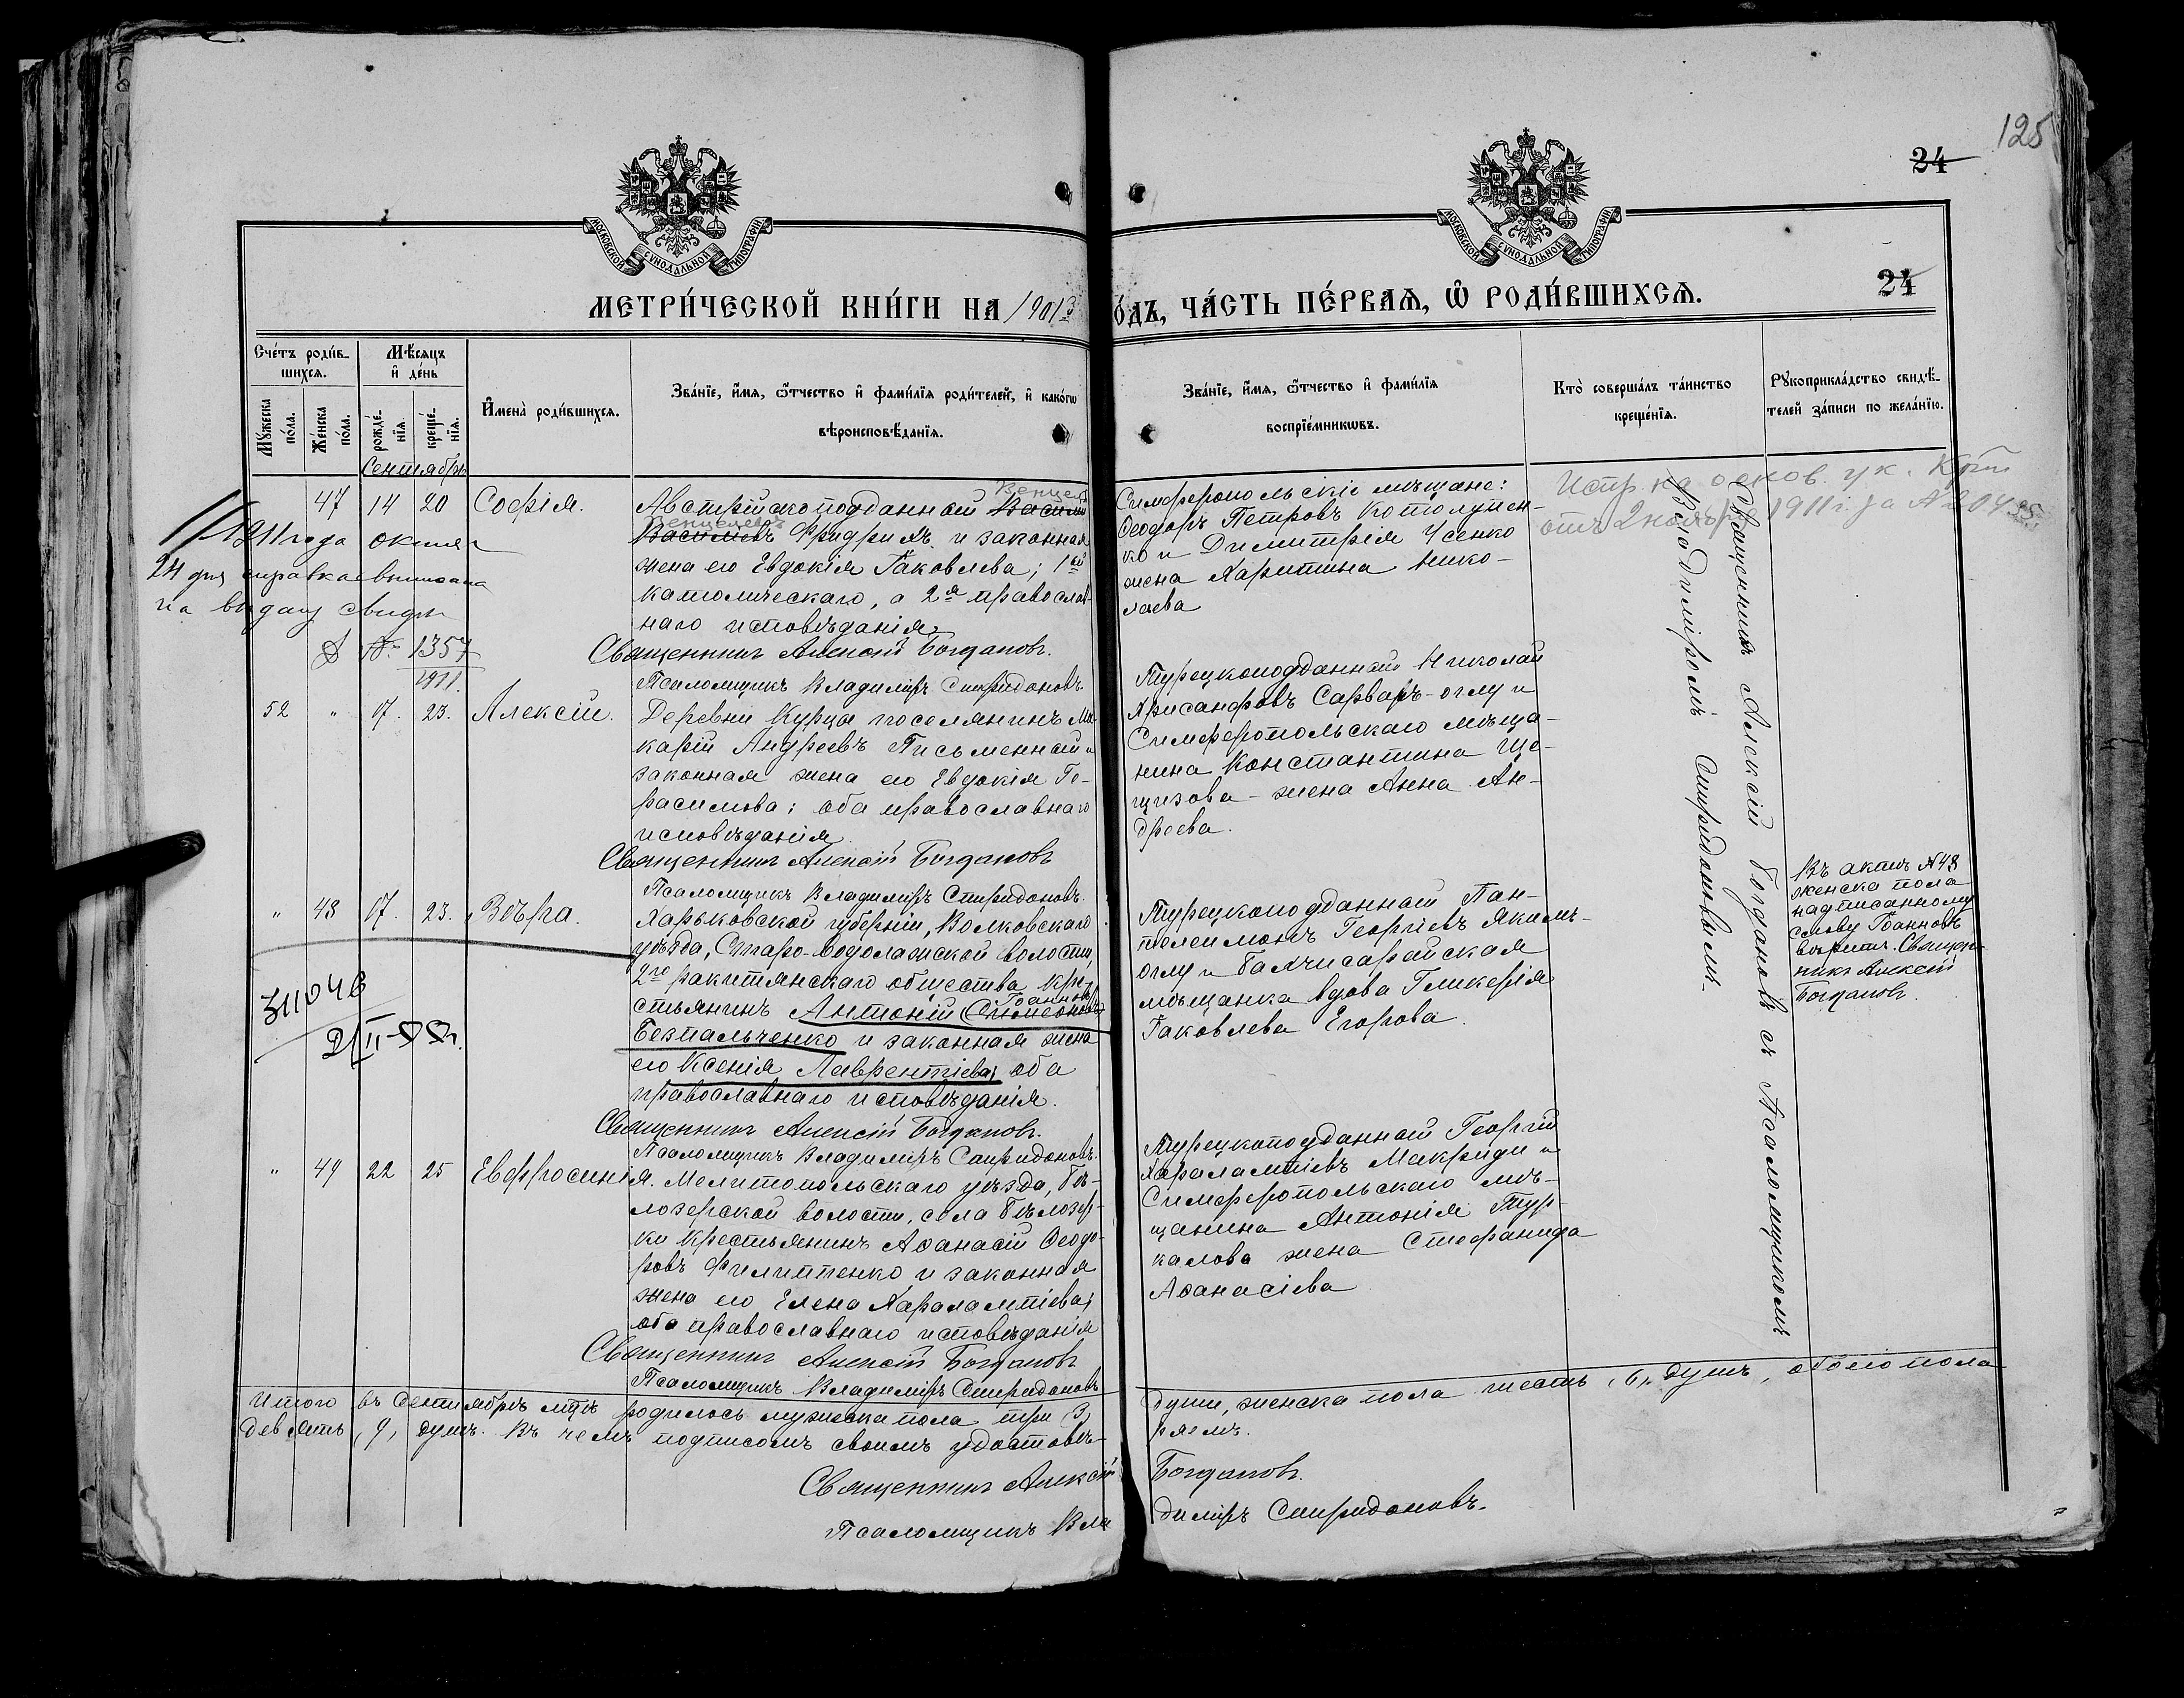 125
24
24
МОСКОВСКОЙ СУНОДАЛЬНОЙ ТИПОГРАФІИ
МОСКОВСКОЙ СУНОДАЛЬНОЙ ТИПОГРАФІИ
МЕТРИ́ЧЕСКОЙ КНИ́ГИ НА 1901
О́ДЪ, ЧА́СТЬ ПЕ́РВАѦ, Ѽ РОДИ́ВШИХСѦ.
Сче́тъ роди́в-
шихсѧ.
Мꙋ́жеска
по́ла.
Же́нска
по́ла.
Мѣ́сѧцъ
и҆ де́нь
рожде́-
нїѧ.
креще́-
нїѧ.
И҆мена̀ роди́вшихсѧ.
Зва́нїе, и҆́мѧ, ѻ҆́тчество и҆ фами́лїѧ роди́телей, и҆ како́гѡ
вѣроисповѣ́данїѧ.
Зва́нїе, и҆́мѧ, ѻ҆́тчество и҆ фами́лїѧ
воспрїе́мникѡвъ.
Кто̀ соверша́лъ та́инство
креще́нїѧ.
Рꙋкоприкла́дство свидѣ́-
телей за́писи по жела́нїю.
Сентябрь
47 14 20 Софія.
Австрійскоподданный Василій Венцель
Васильевъ Венцелевъ Фридрихъ и законная
жена его Евдокія Іаковлева; 1ый
католическаго, а 2я православ-
наго исповѣданія.
Священникъ Алексій Богдановъ.
Псаломщикъ Владиміръ Спиридоновъ.
Симферопольскіе мѣщане:
Ѳеодоръ Петровъ Котолупен-
ко и Димитрія Усенко
жена Харитина Нико-
лаева
Испр. на основ. ук.
отъ 2 ноября 1911 г. за №
1911 года
24 дня справка
на выдачу
№ 1357
1911.
52 " 17. 23. Алексій.
Деревни Курцы поселянинъ Ма-
карій Андреевъ Письменный и
законная жена его Евдокія Ге-
расимова; оба православнаго
исповѣданія.
Священникъ Алексій Богдановъ
Псаломщикъ Владиміръ Спиридоновъ.
Турецкоподданный Николай
Хрисанфовъ Сарваръ-оглу и
Симферопольскаго мѣща-
нина Константина
жена Анна Ан-
дреева.
" 48 17. 23. Вѣра.
Харьковской губерніи, Волковскаго
уѣзда, Старо-водолажской волости,
2го ракитянскаго общества кре-
стьянинъ Антоній Симеоновъ Іоанновъ
Безпальченко и законная жена
его Ксенія Лаврентіева; оба
православнаго исповѣданія.
Священникъ Алексій Богдановъ.
Псаломщикъ Владиміръ Спиридоновъ.
Турецкоподданный Пан-
телеимонъ Георгіевъ Якимъ-
оглу и Бахчисарайская
мѣщанка вдова Гликерія
Іаковлева Егорова.
Въ актѣ №48
женска пола
надписанному
слову Іоанновъ
вѣрить. Священ-
никъ Алексій
Богдановъ.
" 49 22 25 Евфросинія.
Мелитопольскаго уѣзда, Бѣ-
лозерской волости, села Бѣлозер-
ки крестьянинъ Аѳанасій Ѳеодо-
ровъ Филиппенко и законная
жена его Елена Харалампіева;
оба православнаго исповѣданія
Священникъ Алексій Богдановъ
Псаломщикъ Владиміръ Спиридоновъ
Турецкоподданный Георгій
Харалампіевъ Макриди и
Симферопольскаго мѣ-
щанина Антонія Тур-
калова жена Стефанида
Аѳанасіева
Священникъ Алексій Богдановъ съ Псаломщикомъ
Владиміромъ Спиридоновымъ.
Итого въ Сентябрѣ мцѣ родилось мужеска пола три (3) души, женска пола шесть (6) душъ, обоего пола
девять (9) душъ. Въ чемъ подписомъ своимъ удостовѣ-ряемъ.
Священникъ Алексій Богдановъ.
Псаломщикъ Владиміръ Спиридоновъ.